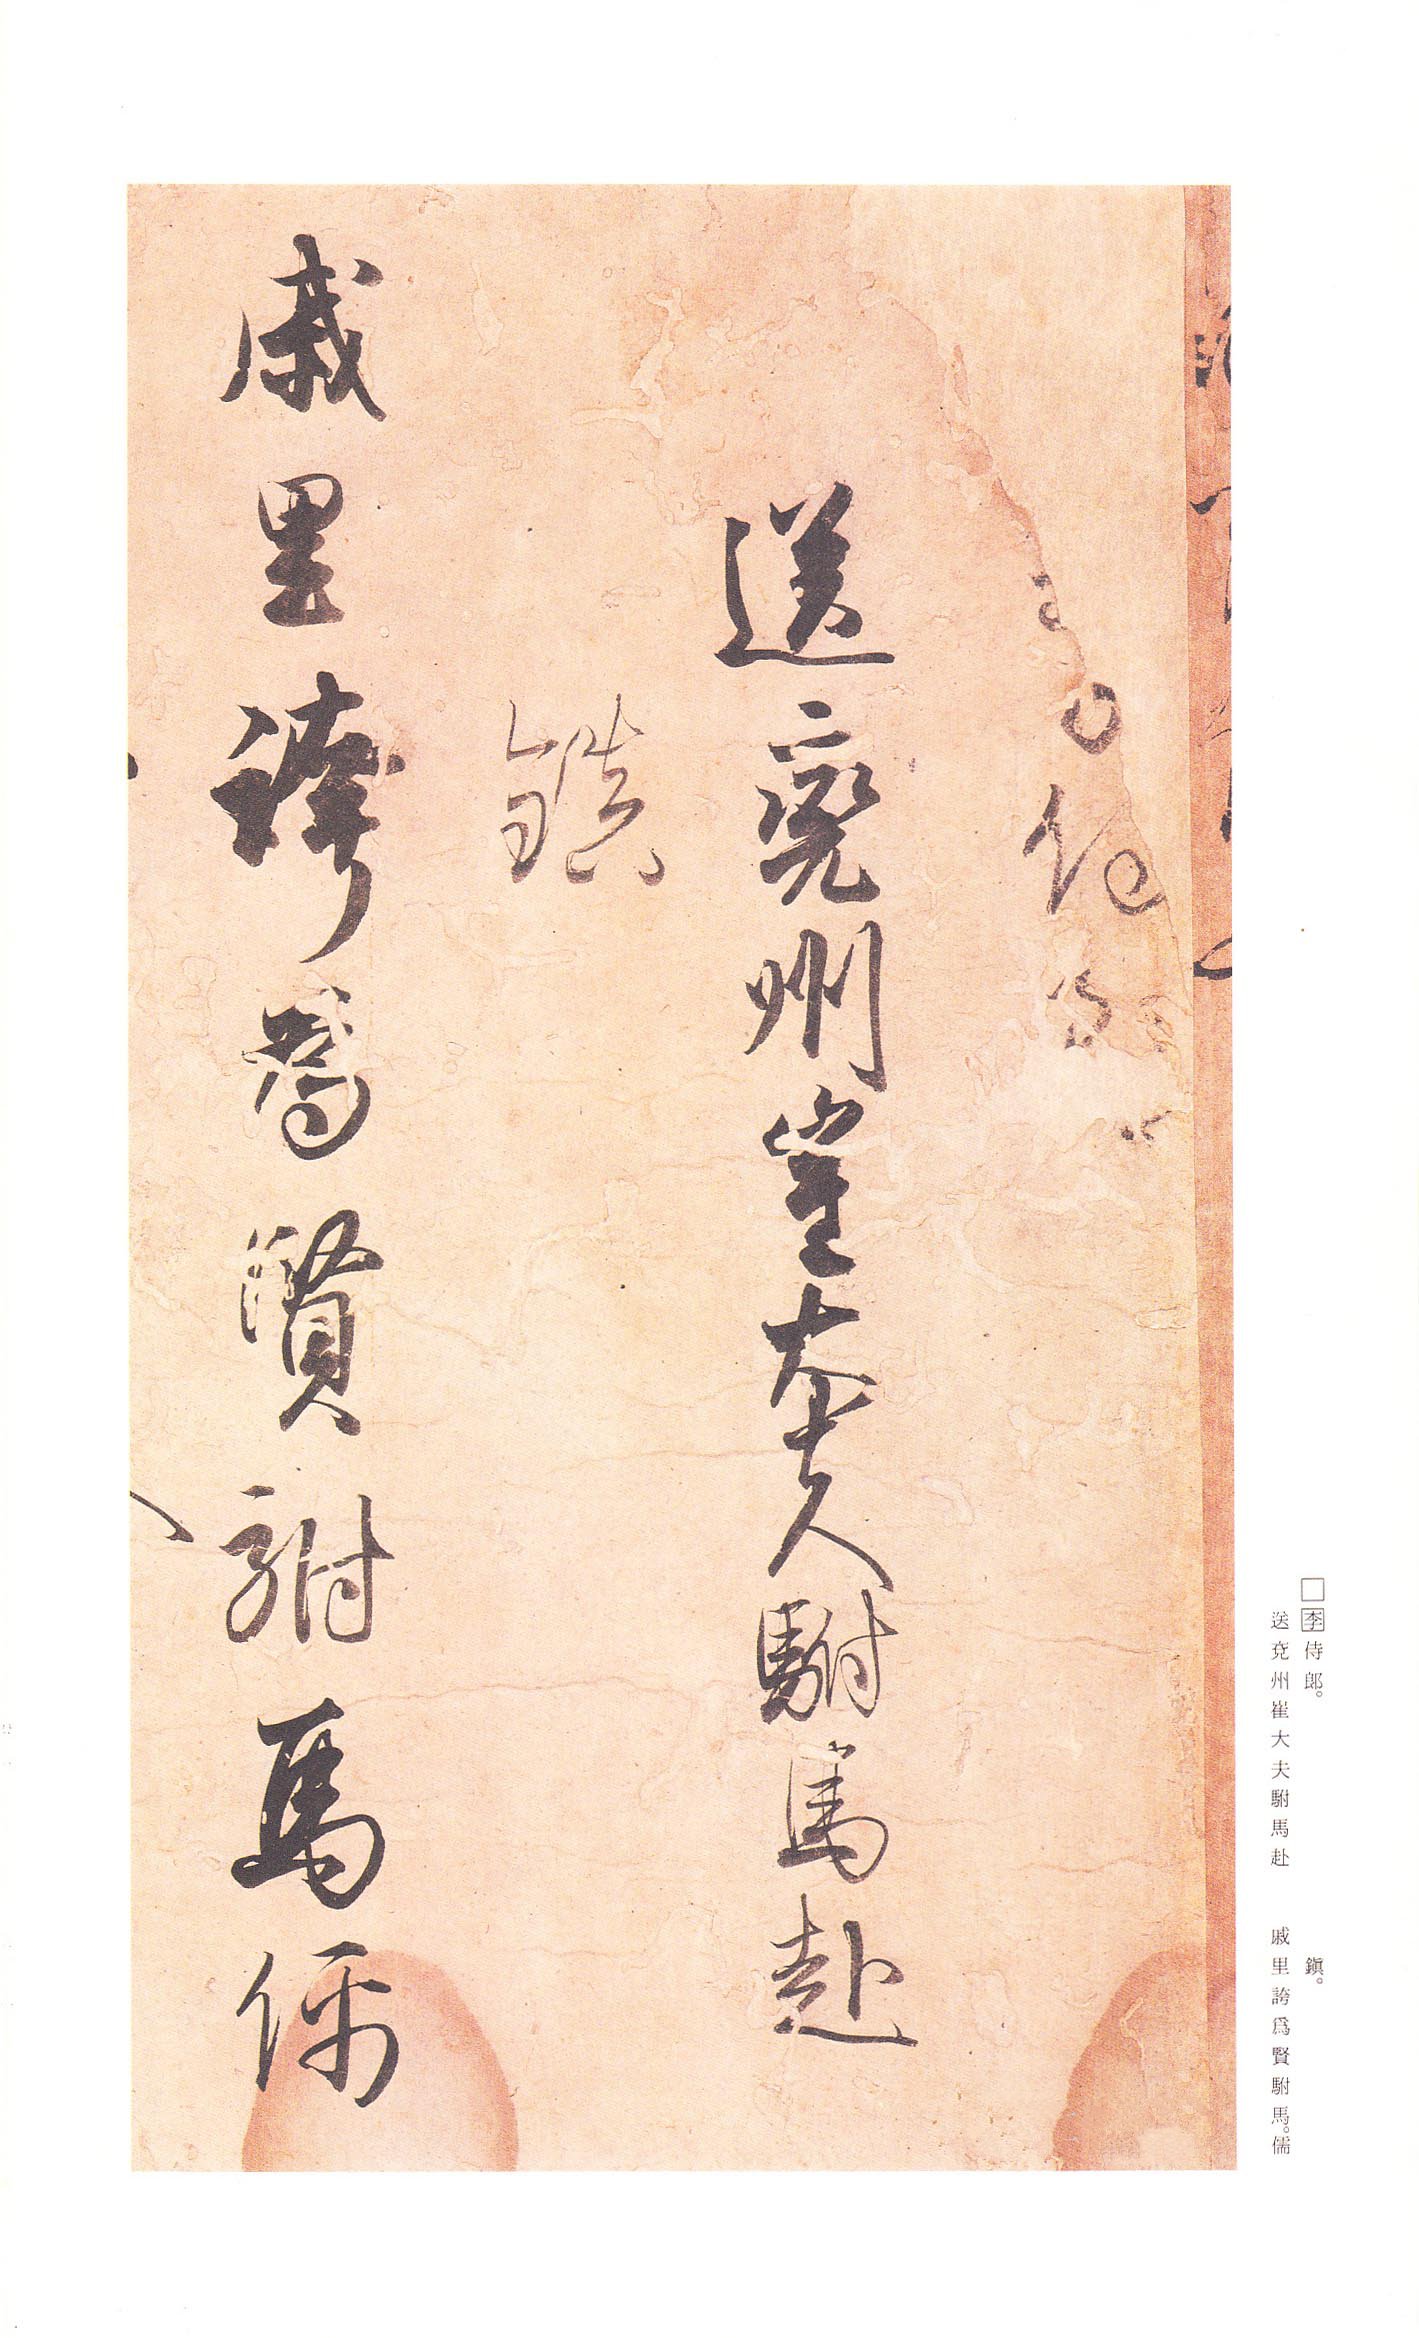 送兗州崔大夫駙馬赴
鎮
戚里誇為賢駙馬儒
□李侍郎。
送兗州崔大夫駙馬赴
鎮。
戚里誇爲賢駙馬。儒